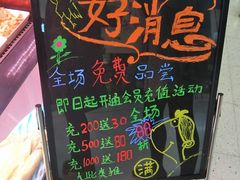 好消息
全场免费品尝
即日起开通会员充值活动
充200送30 全场
充500送80 88折
充1000送180
以此类推
满